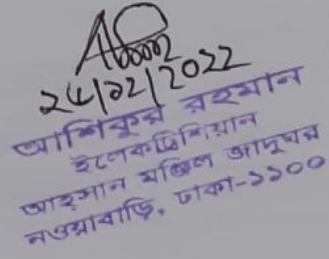 24/02/2022
আশিকুর রহমান
ইলেকট্রিশিয়ান
আহসান মঞ্জিল জাদুঘর
নওয়াবাড়ি, ঢাকা-১১০০